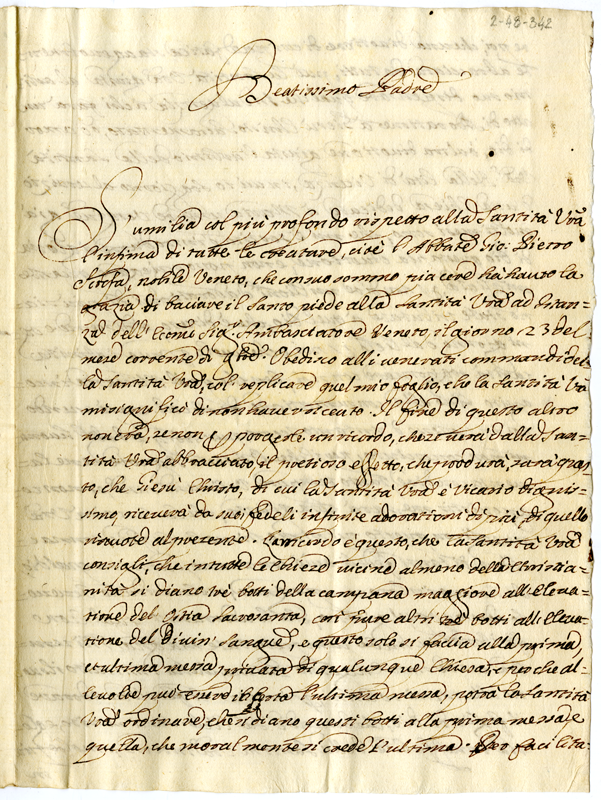 2-48-342
Beatissimo Padre
S'umilia col più profondo rispetto alla Santità Vra
l'infima di tutte le creature, cioè l'Abbate Gio: Pietro
nobile Veneto, che con suo sommo piacere ha hauto la
grazia di baciare il Santo piede alla Santità Vra ad istan=
za dell' Eccmo Sigr Ambasciatore Veneto, il giorno 23 del
mese corrente di Obedisco alli venerati commandi del
la Santità Vra, col replicare quel mio foglio, che la Santità Va
mi significò di non haver riceuto. Il fine di questo altro
non è, se non porgerle un ricordo, che se verrà dalla San=
tità Vra abbracciato, il prezioso effetto, che produrà, sarà ques=
to, che Giesù Christo, di cui la Santità Vra è Vicario dignis=
simo, riceverà da suoi fedeli infinite adorationi di più di quelle
riceute al presente. Il ricordo è questo, che la Santità Vra
consigli, che in tutte le Chiese vicine almeno della Christia=
nità si diano trè botti della campana maggiore all' Eleva=
tione del Ostia sacrosanta, così pure altri trè botti all' Eleva=
tione del Divin' Sangue, e questo solo si faccia alla prima,
et ultima messa privata di qualunque Chiesa, e perche al=
le volte può essere l'ultima messa, potrà la Santità
Vra ordinare, che si diano questi botti alla prima messa, e
quella, che moralmente si crede l'ultima. Per facilita=